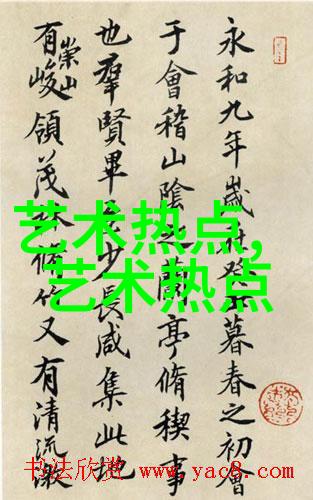 永和九年歲在癸丑暮春之初會
于會稽山陰之蘭亭脩稧事
也羣賢畢至少長咸集此地
有崇山峻領茂林脩竹又有清流激
艺术热点,
艺术热点
书法欣赏 www.yac8.com